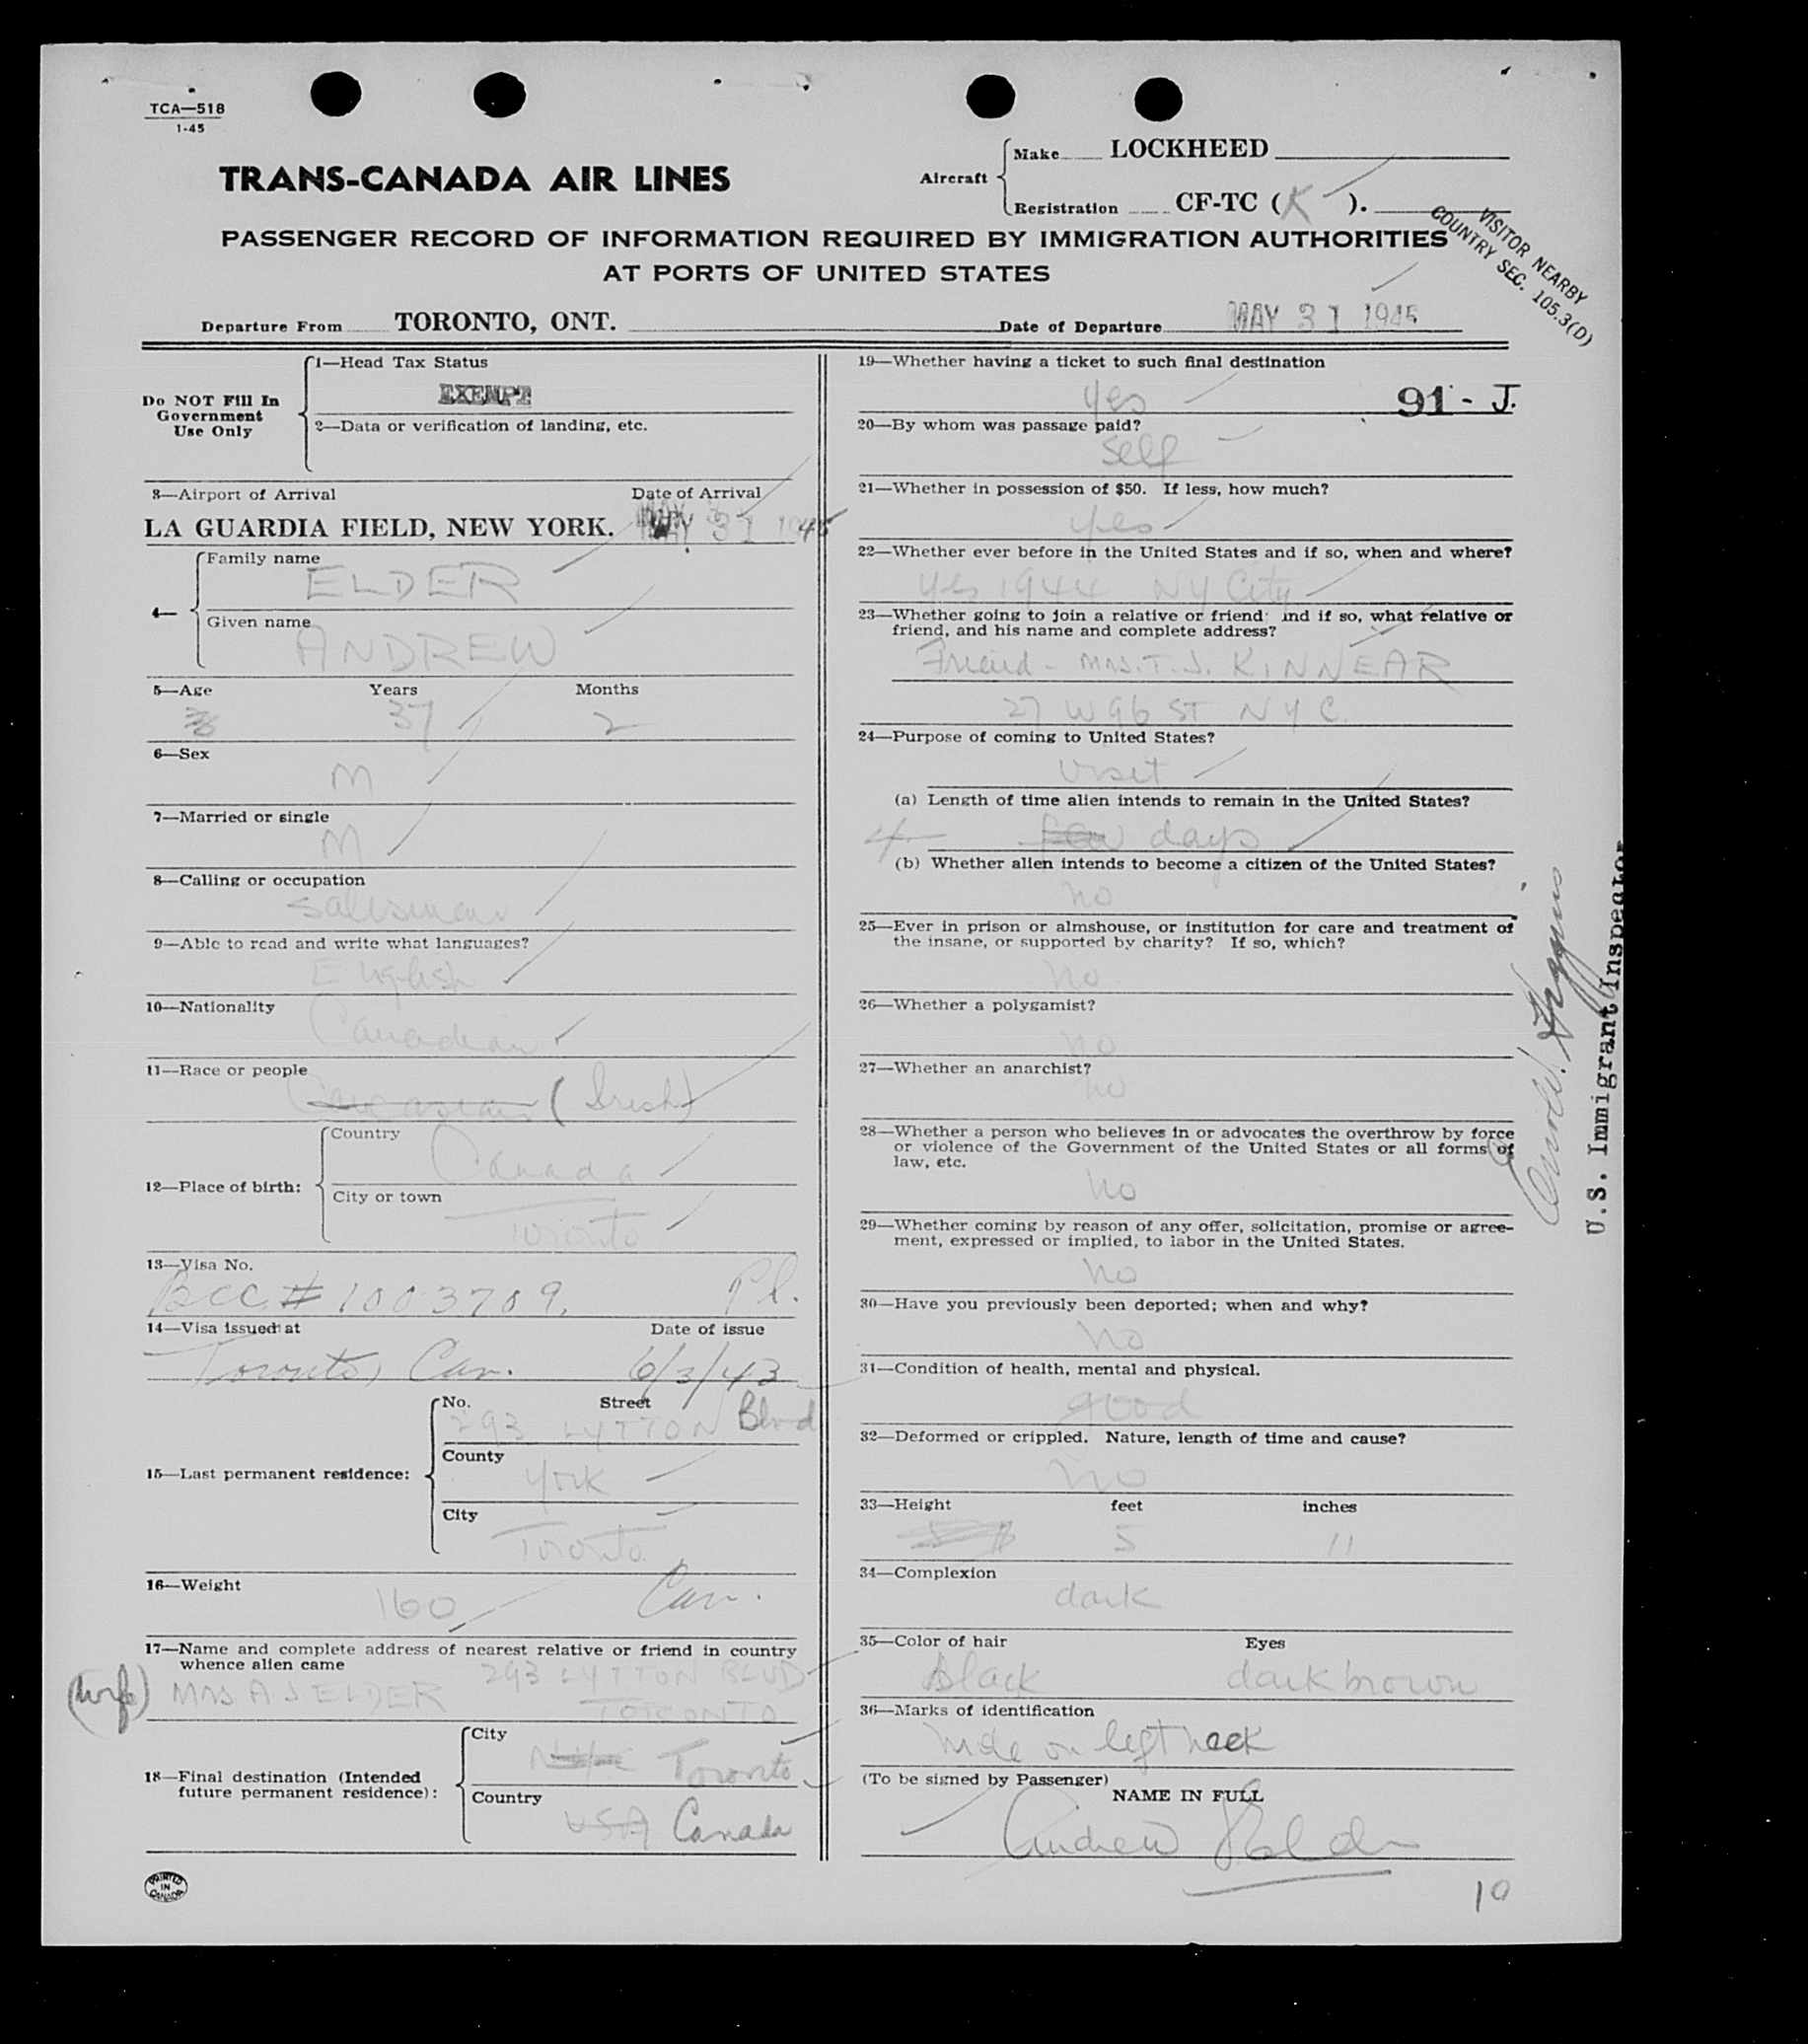 TCA—518
1-45
TRANS-CANADA AIR LINES
Aircraft
Make LOCKHEED
Registration CF-TC (K).
PASSENGER RECORD OF INFORMATION REQUIRED BY IMMIGRATION AUTHORITIES
AT PORTS OF UNITED STATES
VISITOR NEARBY
COUNTRY SEC. 105.3(D)
Departure From TORONTO, ONT. Date of Departure MAY 31 1945
Do NOT Fill In
Government
Use Only
1—Head Tax Status
EXEMPT
2—Data or verification of landing, etc.
3—Airport of Arrival Date of Arrival
LA GUARDIA FIELD, NEW YORK. MAY 31 1945
4—
Family name
ELDER
Given name
ANDREW
5—Age Years Months
37 2
6—Sex
M
7—Married or single
M
8—Calling or occupation
Salesman
9—Able to read and write what languages?
English
10—Nationality
Canadian
11—Race or people
Caucasian (Irish)
12—Place of birth:
Country
Canada
City or town
Toronto
13—Visa No.
BCC # 1003709. Pl.
14—Visa issued at Date of issue
Toronto, Can. 6/3/43
15—Last permanent residence:
No. Street
293 LYTTON Blvd
County
York
City
Toronto
Can.
16—Weight
160
17—Name and complete address of nearest relative or friend in country
whence alien came
293 LYTTON BLVD
(wife) MRS A J ELDER
TORONTO
18—Final destination (Intended
future permanent residence):
City
Toronto
Country
USA Canada
PRINTED
IN
CANADA
19—Whether having a ticket to such final destination
yes
91 - J.
20—By whom was passage paid?
Self
21—Whether in possession of $50. If less, how much?
yes
22—Whether ever before in the United States and if so, when and where?
yes 1944 NY City
23—Whether going to join a relative or friend; and if so, what relative or
friend, and his name and complete address?
Friend - MRS. T. J. KINNEAR
27 W 96 ST N Y C.
24—Purpose of coming to United States?
Visit
(a) Length of time alien intends to remain in the United States?
4 few days
(b) Whether alien intends to become a citizen of the United States?
no
25—Ever in prison or almshouse, or institution for care and treatment of
the insane, or supported by charity? If so, which?
no
26—Whether a polygamist?
no
27—Whether an anarchist?
no
28—Whether a person who believes in or advocates the overthrow by force
or violence of the Government of the United States or all forms of
law, etc.
no
29—Whether coming by reason of any offer, solicitation, promise or agree-
ment, expressed or implied, to labor in the United States.
no
30—Have you previously been deported; when and why?
no
31—Condition of health, mental and physical.
good
32—Deformed or crippled. Nature, length of time and cause?
no
33—Height feet inches
5 11
34—Complexion
dark
35—Color of hair Eyes
black dark brown
36—Marks of identification
mole on left neck
(To be signed by Passenger)
NAME IN FULL
Andrew Elder
10
U.S. Immigrant Inspector